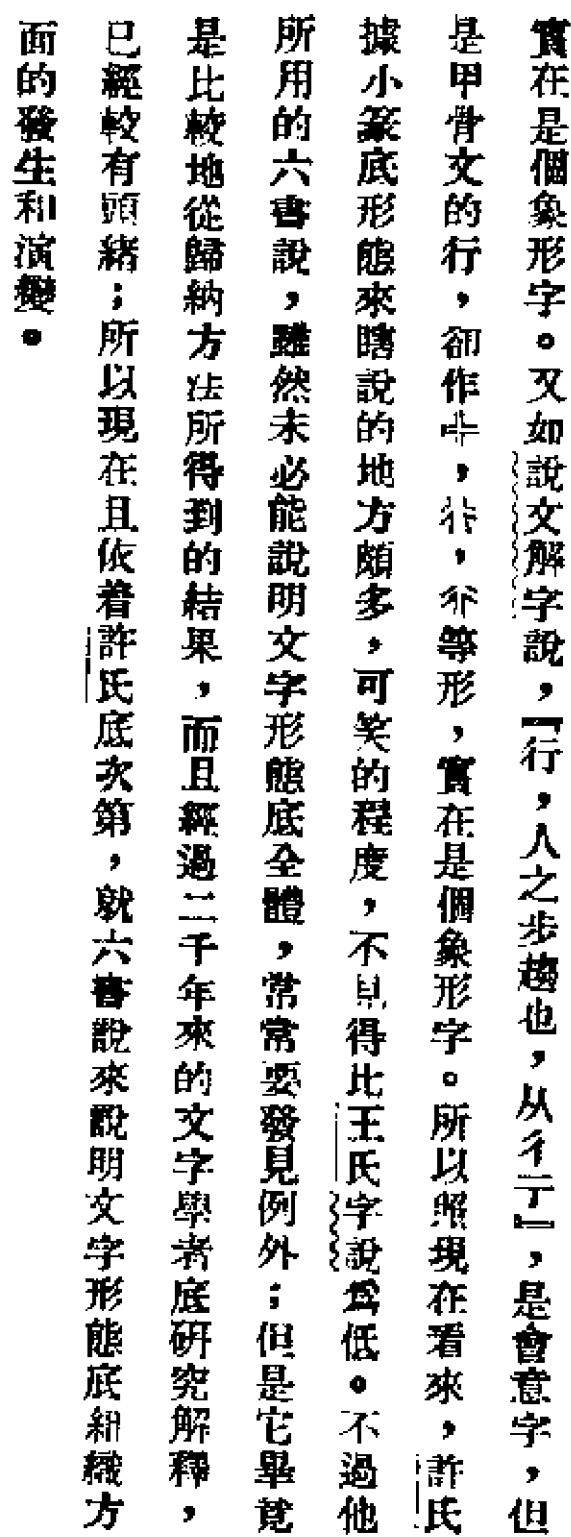 實在是個象形字。又如說文解字說，『行，人之步趨也，从彳亍』，是會意字，但
是甲骨文的行，卻作，，等形，實在是個象形字。所以照現在看來，許氏
據小篆底形態來瞎說的地方頗多，可笑的程度，不見得比王氏字說爲低。不過他
所用的六書說，雖然未必能說明文字形態底全體，常常要發見例外；但是它畢竟
是比較地從歸納方法所得到的結果，而且經過二千年來的文字學者底研究解釋，
已經較有頭緒；所以現在且依着許氏底次第，就六書說來說明文字形態底組織方
面的發生和演變。